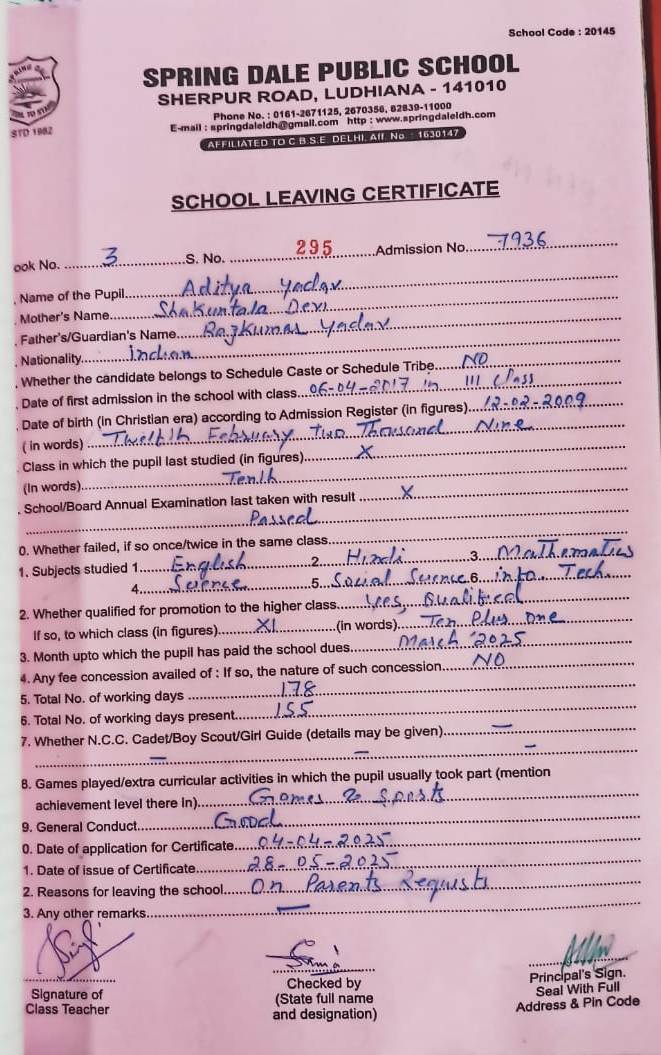 School Code : 20145
SPRING DALE PUBLIC SCHOOL
SHERPUR ROAD, LUDHIANA - 141010
Phone No. : 0161-2671125, 2670356, 82839-11000
E-mail : springdaleldh@gmail.com http : www.springdaleldh.com
AFFILIATED TO C.B.S.E. DELHI, Aff. No. : 1630147
STD 1982
SCHOOL LEAVING CERTIFICATE
ook No. 3 S. No. 295 Admission No. 7936
. Name of the Pupil Aditya Yadav
. Mother's Name Shakuntala Devi
. Father's/Guardian's Name Rajkumar Yadav
. Nationality Indian
. Whether the candidate belongs to Schedule Caste or Schedule Tribe NO
. Date of first admission in the school with class 06-04-2017 in III Class
. Date of birth (in Christian era) according to Admission Register (in figures) 12-02-2009
(in words) Twelfth February Two Thousand Nine
. Class in which the pupil last studied (in figures) X
(In words) Tenth
. School/Board Annual Examination last taken with result X
Passed
0. Whether failed, if so once/twice in the same class
1. Subjects studied 1. English 2. Hindi 3. Mathematics
4. Science 5. Social Science 6. info. Tech.
2. Whether qualified for promotion to the higher class Yes, Qualified
If so, to which class (in figures) XI (in words) Ten Plus one
3. Month upto which the pupil has paid the school dues March '2025
4. Any fee concession availed of : If so, the nature of such concession NO
5. Total No. of working days 178
6. Total No. of working days present 155
7. Whether N.C.C. Cadet/Boy Scout/Girl Guide (details may be given) —
— — –
8. Games played/extra curricular activities in which the pupil usually took part (mention
achievement level there in) Games & Sports
9. General Conduct Good
0. Date of application for Certificate 04-04-2025
1. Date of issue of Certificate 28-05-2025
2. Reasons for leaving the school On Parents Requests
3. Any other remarks —
Signature of
Class Teacher
Checked by
(State full name
and designation)
Principal's Sign.
Seal With Full
Address & Pin Code